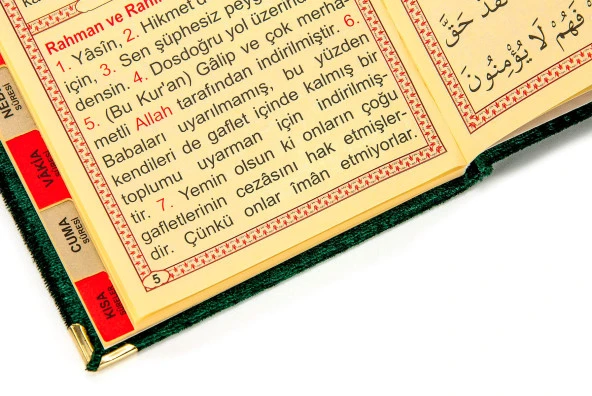 Rahman ve Rahi
1. Yâsîn, 2. Hikmet'd
için, 3. Sen şüphesiz peyg
densin. 4. Dosdoğru yol üzerind
5. (Bu Kur'an) Gâlip ve çok merha-
metli Allah tarafından indirilmiştir. 6.
Babaları uyarılmamış, bu yüzden
kendileri de gaflet içinde kalmış bir
toplumu uyarman için indirilmiş-
tir. 7. Yemin olsun ki onların çoğu
gafletlerinin cezâsını hak etmişler-
dir. Çünkü onlar îmân etmiyorlar.
5
لَقَدْ حَقَّ
فَهُمْ لَا يُؤْمِنُونَ
NEB
SÛRESİ
VÂKIA
SÛRESİ
CUMA
SÛRESİ
KISA
SÛRELER